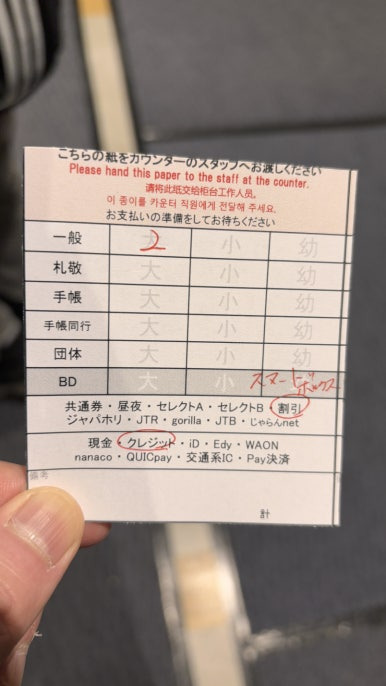 こちらの紙をカウンターのスタッフへお渡しください
Please hand this paper to the staff at the counter.
请将此纸交给柜台工作人员。
이 종이를 카운터 직원에게 전달해 주세요.
お支払いの準備をしてお待ちください
一般 大 2 小 幼
札敬 大 小 幼
手帳 大 小 幼
手帳同行 大 小 幼
団体 大 小 幼
BD 大 小 スマートボックス
共通券・昼夜・セレクトA・セレクトB・割引
ジャパホリ・JTR・gorilla・JTB・じゃらんnet
現金・クレジット・iD・Edy・WAON
nanaco・QUICpay・交通系IC・Pay決済
備考
計